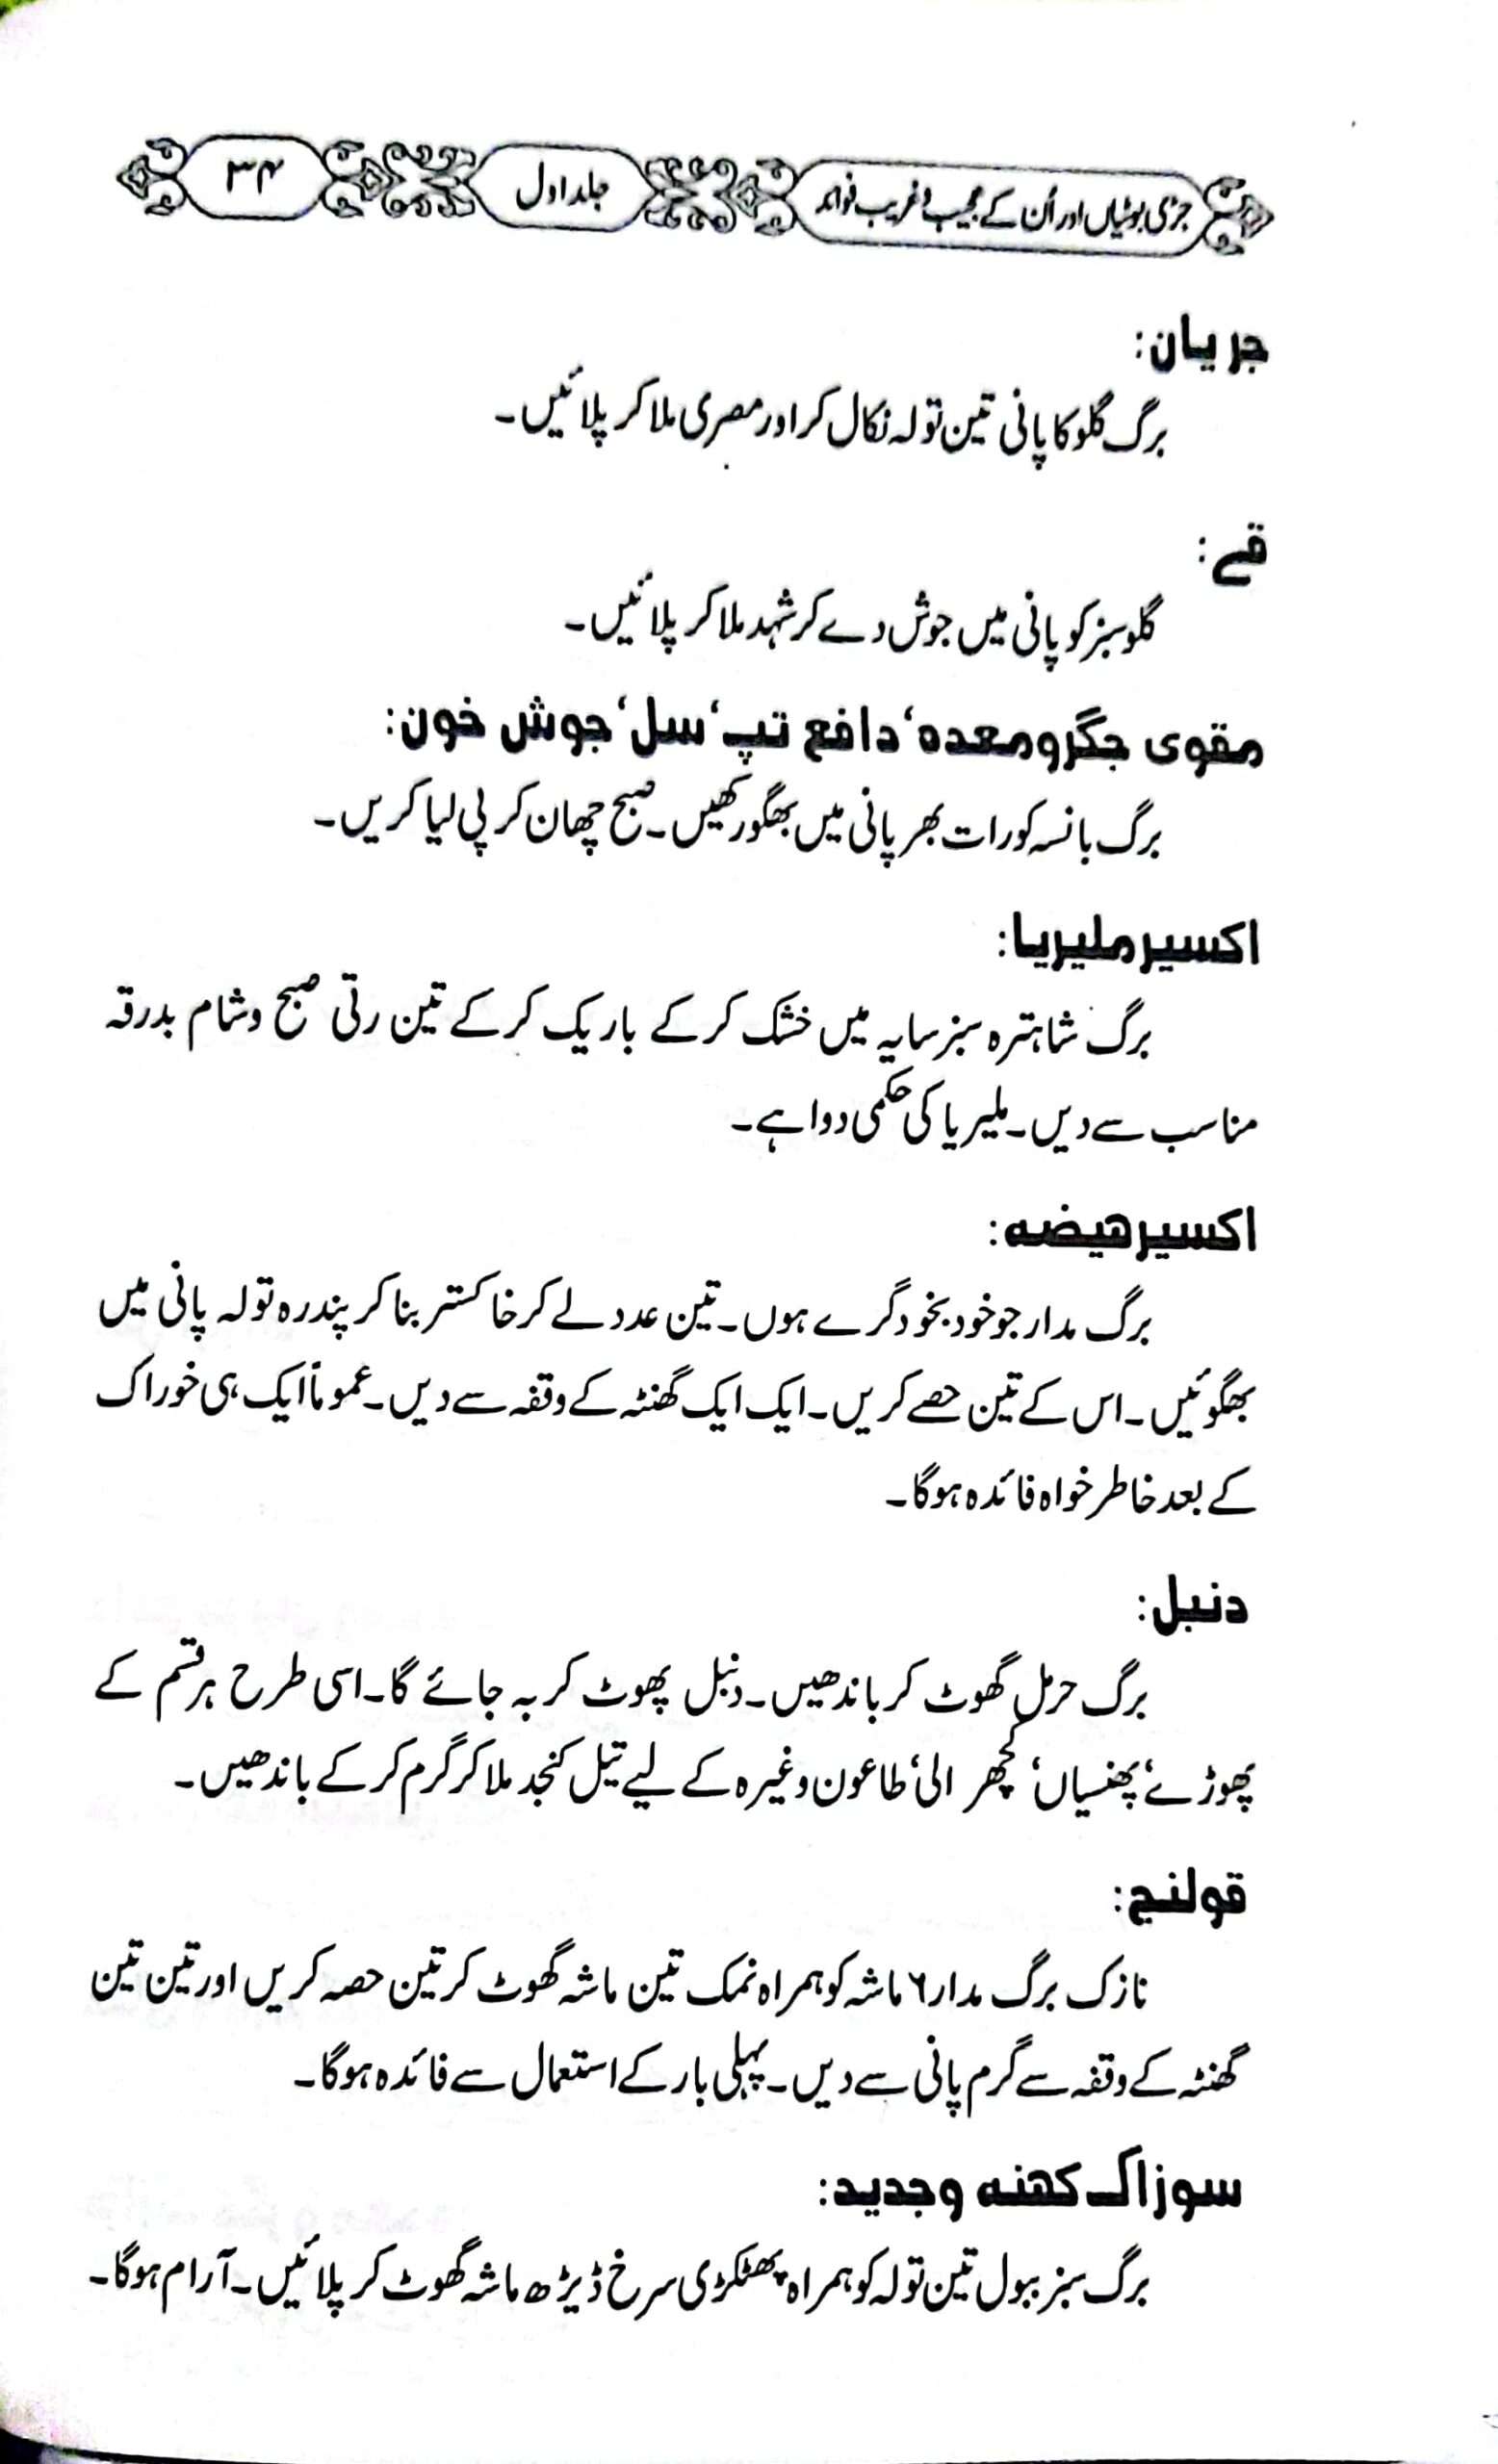 جڑی بوٹیاں اور اُن کے عجیب و غریب فوائد جلد اول ۳۴
جریان:
برگ گلو کا پانی تین تولہ نکال کر اور مصری ملا کر پلائیں۔
قے:
گلو سبز کو پانی میں جوش دے کر شہد ملا کر پلائیں۔
مقوی جگر و معدہ، دافع تپ، سل، جوش خون:
برگ بانسہ کو رات بھر پانی میں بھگو رکھیں۔ صبح چھان کر پی لیا کریں۔
اکسیر ملیریا:
برگ شاہترہ سبز سایہ میں خشک کر کے باریک کر کے تین رتی صبح و شام بدرقہ
مناسب سے دیں۔ ملیریا کی حکمی دوا ہے۔
اکسیر ھیضہ:
برگ مدار جو خود بخود گرے ہوں۔ تین عدد لے کر خاکستر بنا کر پندرہ تولہ پانی میں
بھگوئیں۔ اس کے تین حصے کریں۔ ایک ایک گھنٹہ کے وقفہ سے دیں۔ عموماً ایک ہی خوراک
کے بعد خاطر خواہ فائدہ ہوگا۔
دنبل:
برگ حرمل گھوٹ کر باندھیں۔ دنبل پھوٹ کر بہ جائے گا۔ اسی طرح ہر قسم کے
پھوڑے، پھنسیاں، کچھرالی، طاعون وغیرہ کے لیے تیل کنجد ملا کر گرم کر کے باندھیں۔
قولنج:
نازک برگ مدار ۶ ماشہ کو ہمراہ نمک تین ماشہ گھوٹ کر تین حصہ کریں اور تین تین
گھنٹہ کے وقفہ سے گرم پانی سے دیں۔ پہلی بار کے استعمال سے فائدہ ہوگا۔
سوزاک کھنہ و جدید:
برگ سبز ببول تین تولہ کو ہمراہ پھٹکڑی سرخ ڈیڑھ ماشہ گھوٹ کر پلائیں۔ آرام ہوگا۔